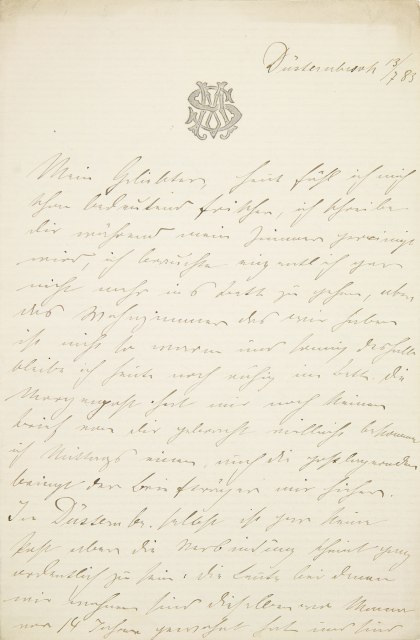 Düsternbrook 13/7 83
Mein Geliebter, heut fühl ich mich
schon bedeutend frischer, ich schreibe
dir während mein Zimmer gereinigt
wird, ich brauchte eigentlich gar
nicht mehr ins Bett zu gehen, aber
das Wohnzimmer das wir haben
ist nicht so warm und sonnig deshalb
bleibe ich heute noch ruhig im Bette. die
Morgenpost hat mir noch keinen
brief von dir gebracht vielleicht bekomme
ich Mittags einen, auch die
bringt der Briefträger mir hierher.
In Düsternbr. selbst ist gar keine
Post aber die Verbindung scheint ganz
ordentlich zu sein. die Leute bei denen
wir wohnen sind dieselben wo Mama
vor 14 Jahren gewohnt hat und sind